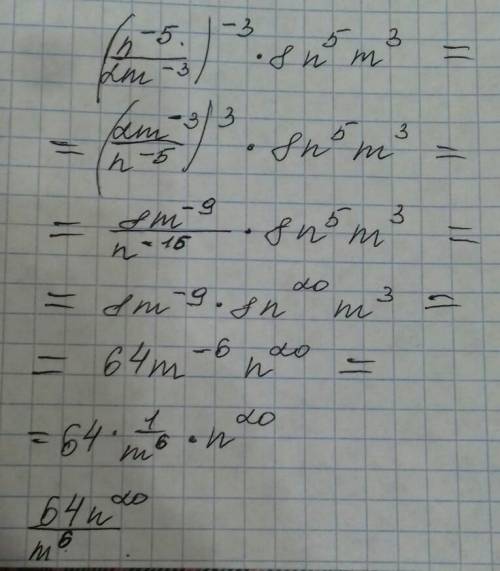 (n⁻⁵/2m⁻³)⁻³ · 8n⁵m³ =
= (2m⁻³/n⁻⁵)³ · 8n⁵m³ =
= 8m⁻⁹/n⁻¹⁵ · 8n⁵m³ =
= 8m⁻⁹ · 8n²⁰m³ =
= 64m⁻⁶n²⁰ =
= 64 · 1/m⁶ · n²⁰
64n²⁰/m⁶